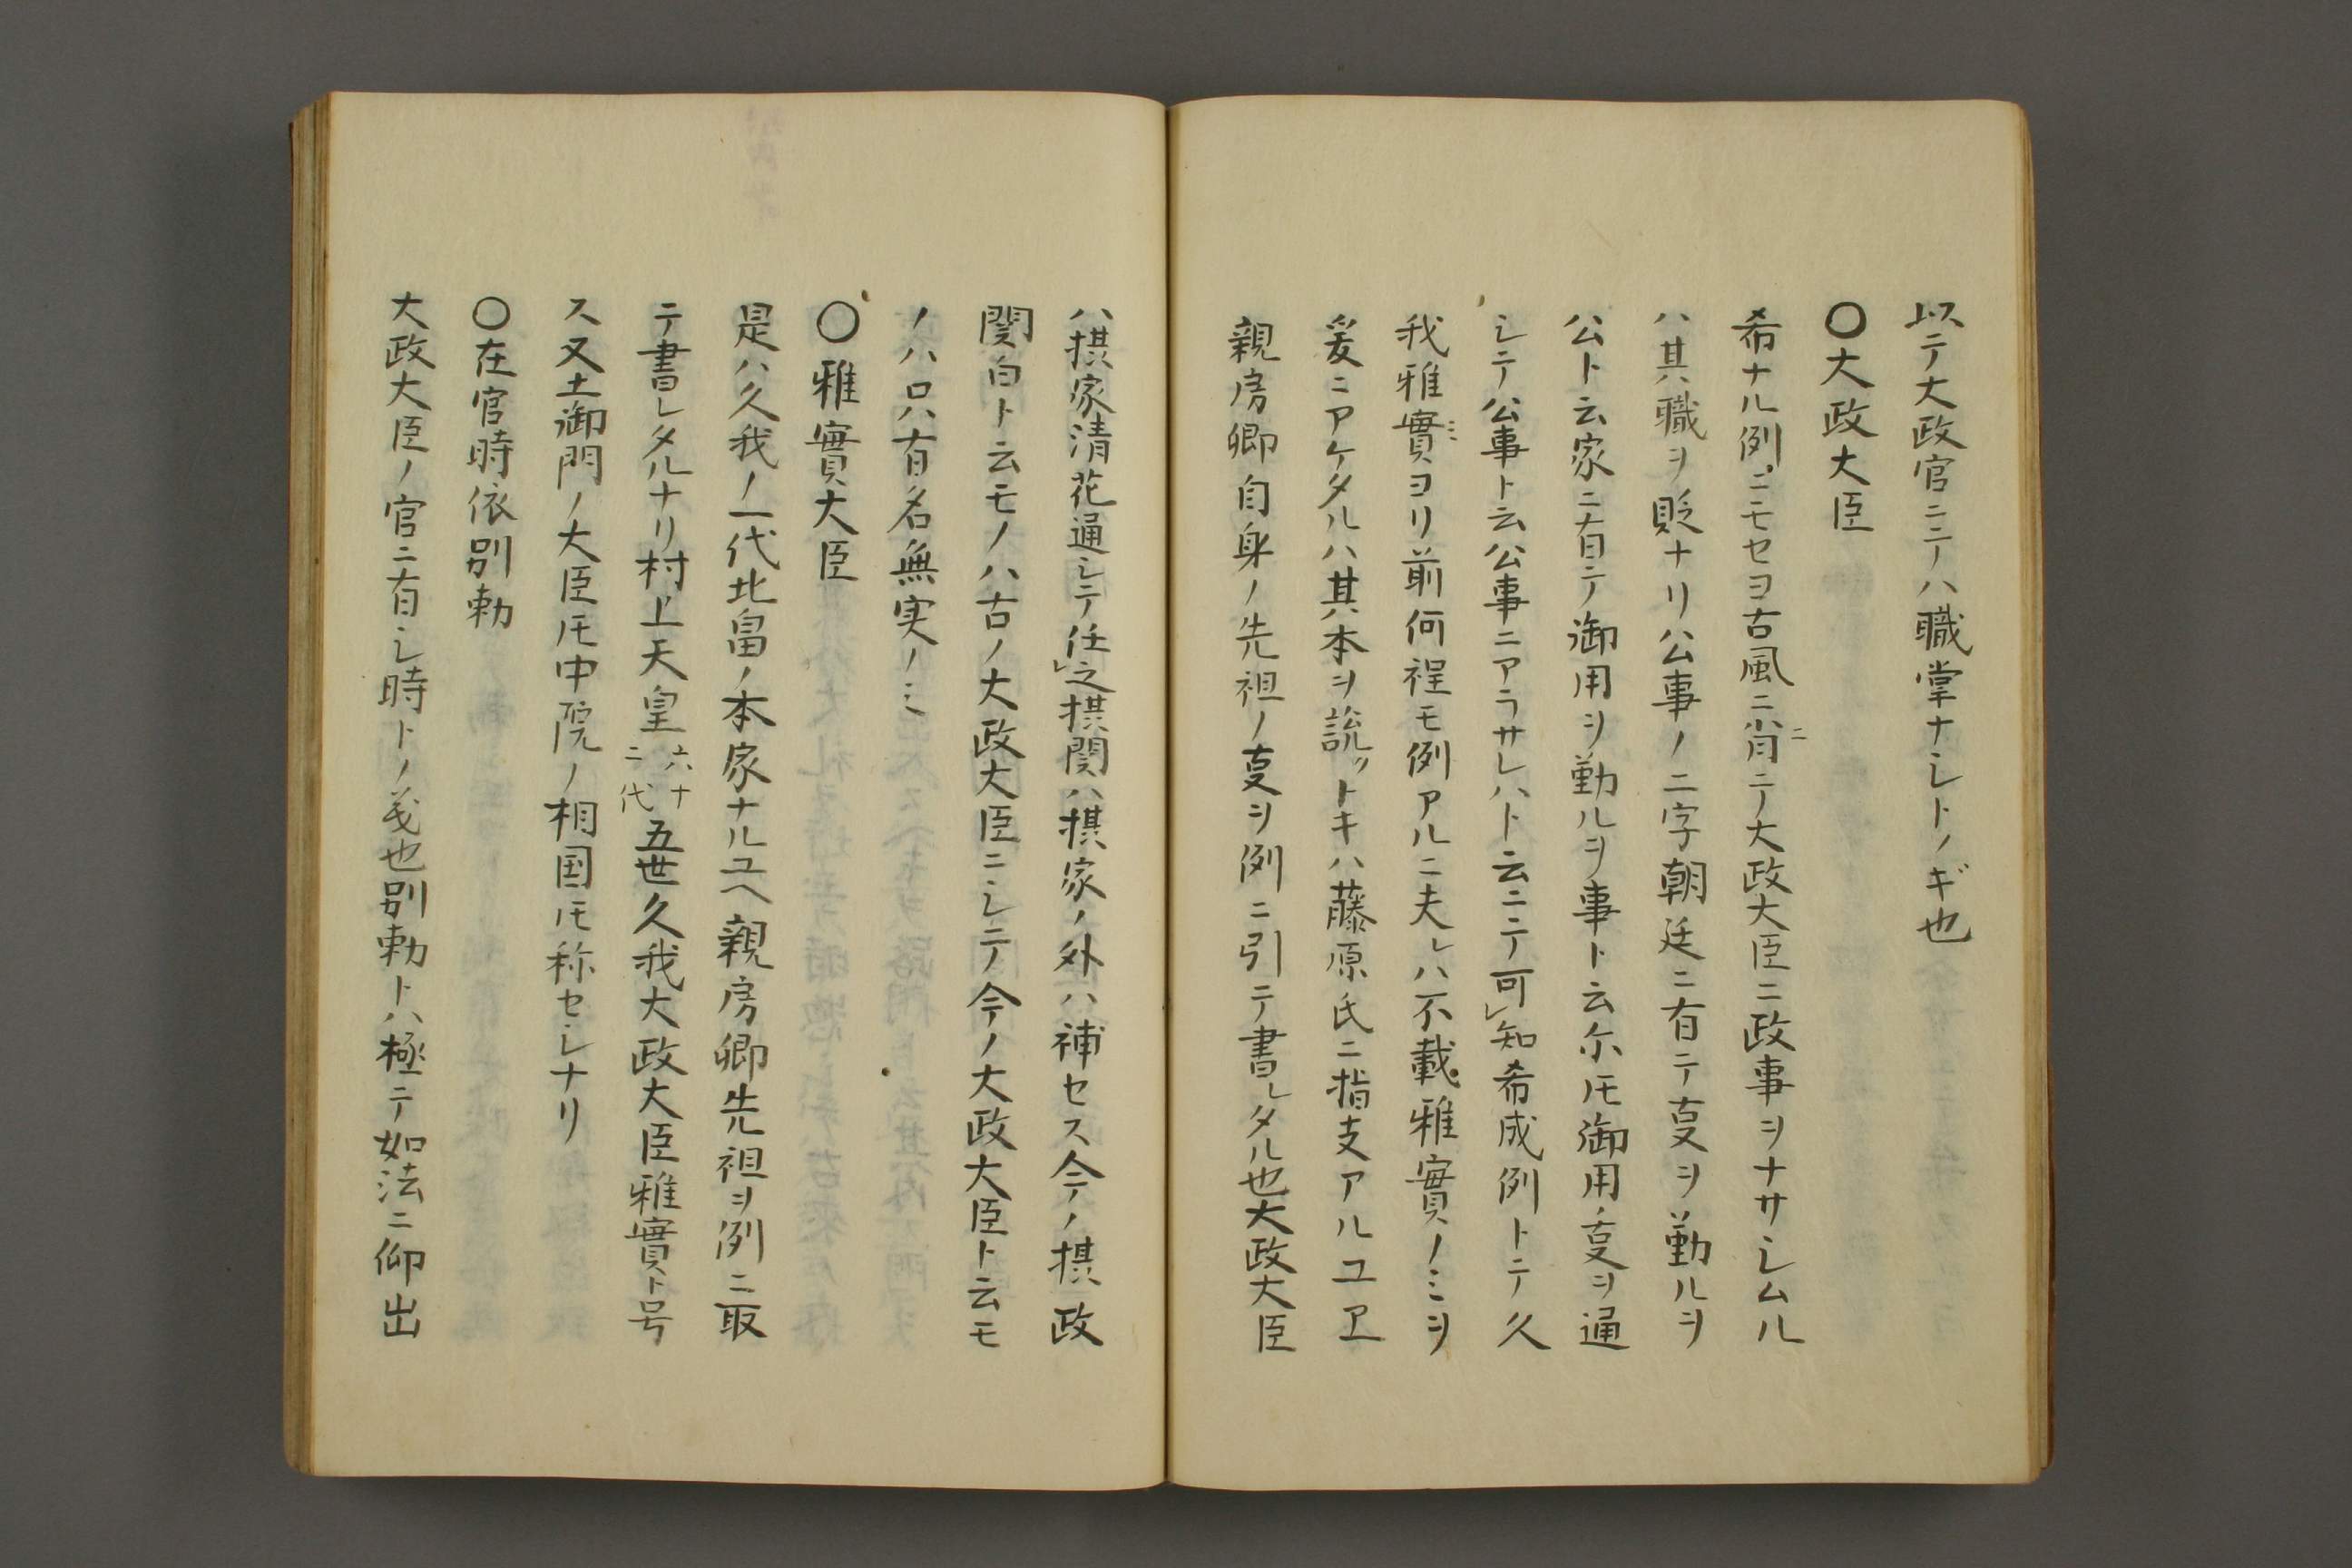 以テ大政官ニテハ職掌ナシトノギ也
〇大政大臣
希ナル例ニモセヨ古風ニ背ニテ大政大臣ニ政事ヲナサシムル
ハ其職ヲ貶ナリ公事ノ二字朝廷ニ有テ叓ヲ勤ルヲ
公ト云家ニ有テ御用ヲ勤ルヲ事ト云尓𪜈御用ノ叓ヲ通
シテ公事ト云公事ニアラサレハト云ニテ可㆑知希成例トテ久
我雅實ヨリ前何程モ例アルニ夫レハ不載雅實ノミヲ
爰ニアケタルハ其本ヲ説クトキハ藤原氏ニ指支アルユヱ
親房卿自身ノ先祖ノ叓ヲ例ニ引テ書レタル也大政大臣
ハ摂家清花通シテ任㆑之摂関ハ摂家ノ外ハ補セス今ノ摂政
関白ト云モノハ古ノ大政大臣ニシテ今ノ大政大臣ト云モ
ノハ只有名無実ノミ
〇雅實大臣
是ハ久我ノ一代北畠ノ本家ナルユヘ親房卿先祖ヲ例ニ取
テ書レタルナリ村上天皇六十二代五世久我大政大臣雅實ト号
ス又土御門ノ大臣𪜈中院ノ相国𪜈称セシナリ
〇在官時依別勅
大政大臣ノ官ニ有シ時トノ義也別勅トハ極テ如法ニ仰出